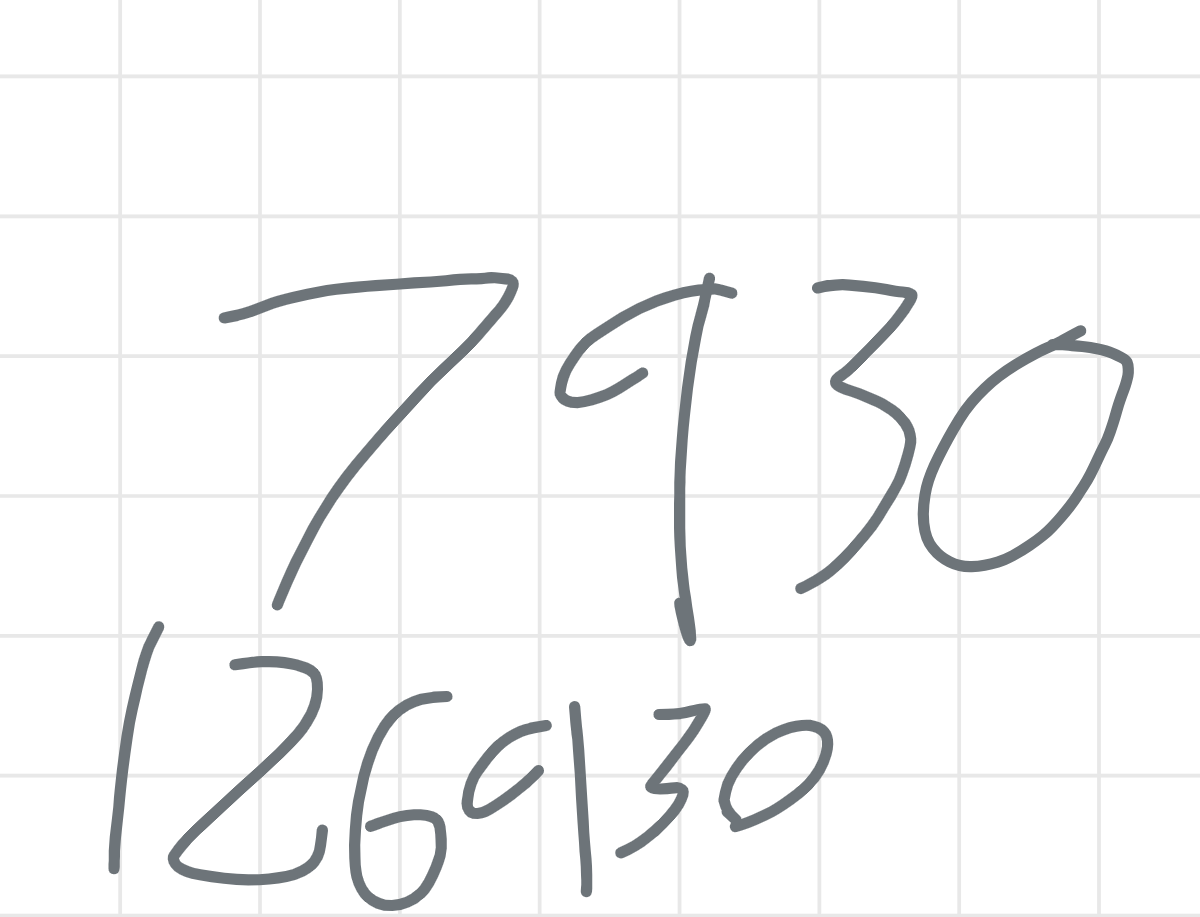 7930
126930